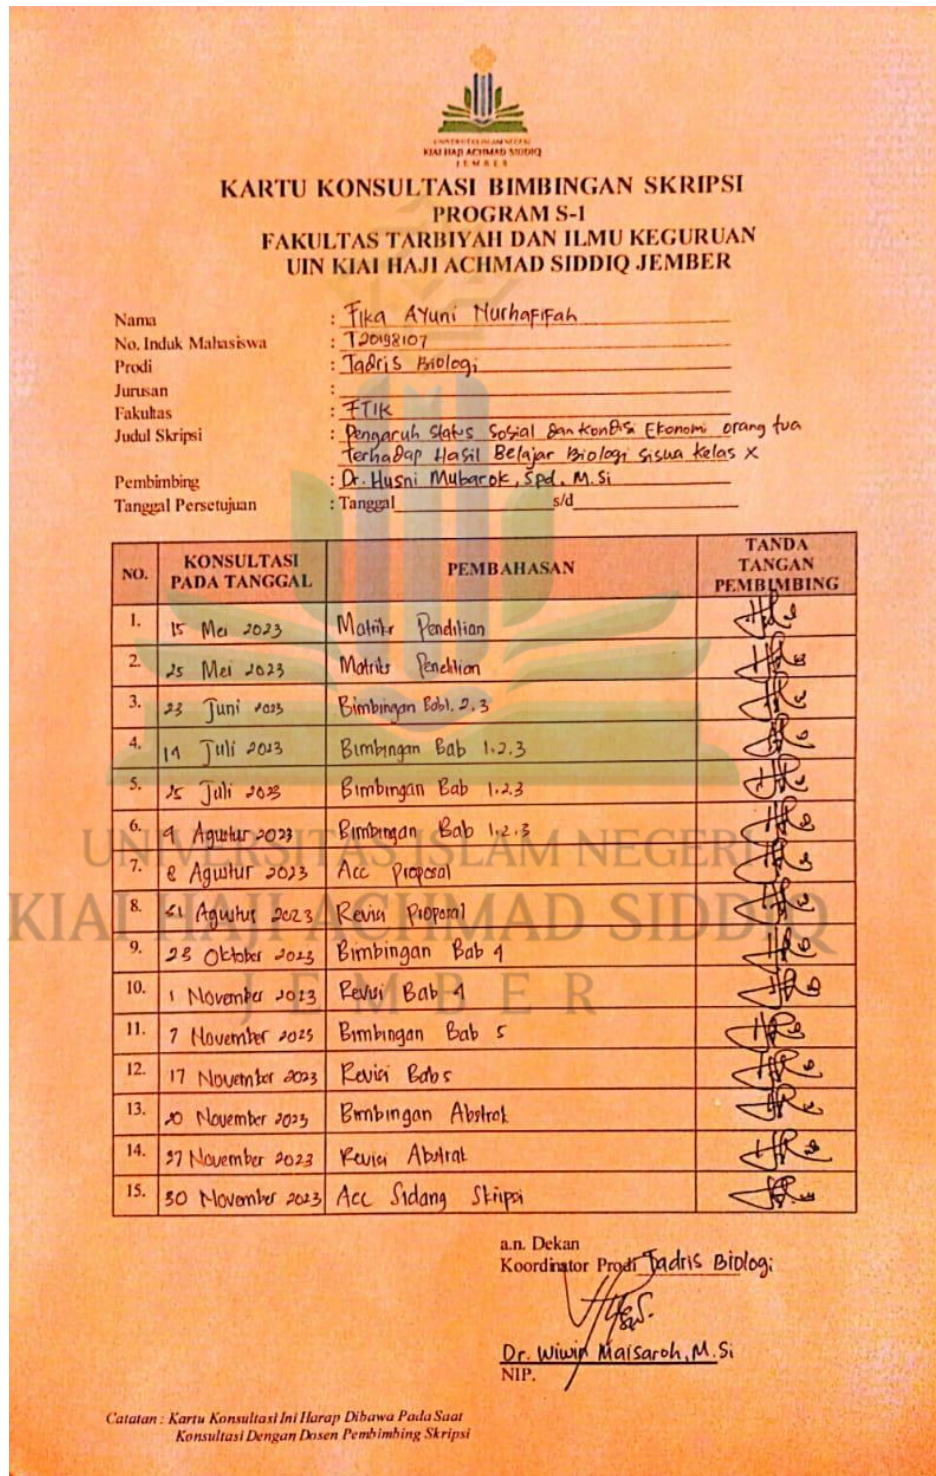 UNIVERSITAS ISLAM NEGERI
KIAI HAJI ACHMAD SIDDIQ
JEMBER
KARTU KONSULTASI BIMBINGAN SKRIPSI
PROGRAM S-1
FAKULTAS TARBIYAH DAN ILMU KEGURUAN
UIN KIAI HAJI ACHMAD SIDDIQ JEMBER
Nama : Fika Ayuni Nurhafifah
No. Induk Mahasiswa : T20198107
Prodi : Tadris Biologi
Jurusan :
Fakultas : FTIK
Judul Skripsi : Pengaruh Status Sosial dan Kondisi Ekonomi orang tua
terhadap Hasil Belajar Biologi siswa kelas X
Pembimbing : Dr. Husni Mubarok, Spd. M.Si
Tanggal Persetujuan : Tanggal s/d
NO. KONSULTASI PADA TANGGAL PEMBAHASAN TANDA TANGAN PEMBIMBING
1. 15 Mei 2023 Matriks Penelitian
2. 25 Mei 2023 Matriks Penelitian
3. 23 Juni 2023 Bimbingan Bab 1.2.3
4. 14 Juli 2023 Bimbingan Bab 1.2.3
5. 25 Juli 2023 Bimbingan Bab 1.2.3
6. Agustus 2023 Bimbingan Bab 1.2.3
7. 8 Agustus 2023 Acc Proposal
8. 31 Agustus 2023 Revisi Proposal
9. 23 Oktober 2023 Bimbingan Bab 4
10. 1 November 2023 Revisi Bab 4
11. 7 November 2023 Bimbingan Bab 5
12. 17 November 2023 Revisi Bab 5
13. 20 November 2023 Bimbingan Abstrak
14. 27 November 2023 Revisi Abstrak
15. 30 November 2023 Acc Sidang Skripsi
UNIVERSITAS ISLAM NEGERI
KIAI HAJI ACHMAD SIDDIQ
JEMBER
a.n. Dekan
Koordinator Prodi Tadris Biologi
Dr. Wiwin Maisaroh, M.Si
NIP.
Catatan : Kartu Konsultasi Ini Harap Dibawa Pada Saat
Konsultasi Dengan Dosen Pembimbing Skripsi